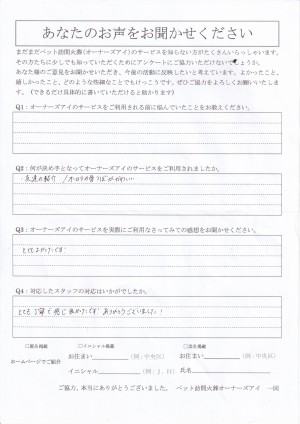 あなたのお声をお聞かせください
まだまだペット訪問火葬(オーナーズアイ)のサービスを知らない方がたくさんいらっしゃいます。
その方たちに少しでも知っていただくためにアンケートにご協力いただけないでしょうか。
あなた様のご意見をお聞かせいただき、今後の活動に反映したいと考えています。よかったこと、
嬉しかったこと、どのような些細なことでもけっこうです。ぜひご協力をよろしくお願いいたしま
す。(できるだけ具体的に書いていただけると助かります)
Q1:オーナーズアイのサービスをご利用される前に悩んでいたことをお教えください。
Q2:何が決め手となってオーナーズアイのサービスをご利用されましたか。
・友達の紹介
Q3:オーナーズアイのサービスを実際にご利用なさってみての感想をお聞かせください。
とてもよかったです!
Q4:対応したスタッフの対応はいかがでしたか。
とても丁寧で感じ良かったです! ありがとうございました!
□匿名掲載 □イニシャル掲載 □実名掲載
ホームページでご紹介
お住まい (例:中央区) お住まい (例:中央区)
イニシャル (例:J.H) 氏名
ご協力、本当にありがとうございました。 ペット訪問火葬オーナーズアイ 一同